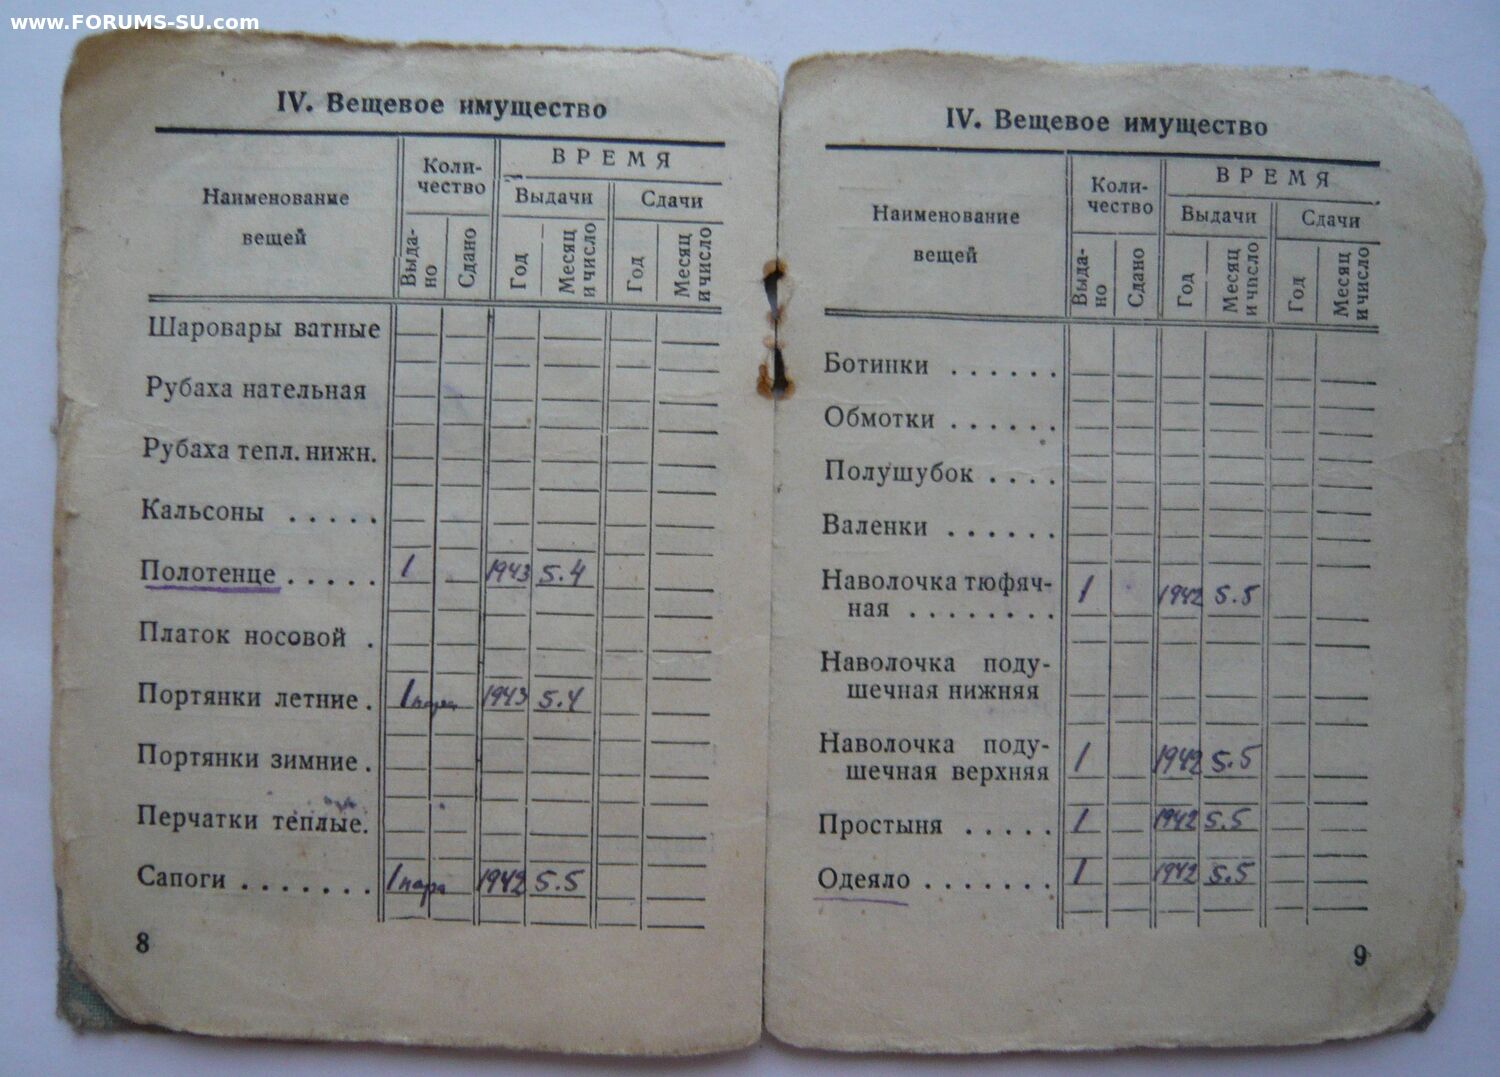 www.FORUMS-SU.com
IV. Вещевое имущество
Наименование вещей
Коли-
чество
ВРЕМЯ
Выдачи
Сдачи
Выда-
но
Сдано
Год
Месяц
и число
Год
Месяц
и число
Шаровары ватные
Рубаха нательная
Рубаха тепл. нижн.
Кальсоны . . . . .
Полотенце . . . . . 1 1943 5.4
Платок носовой .
Портянки летние . 1 пара 1943 5.4
Портянки зимние .
Перчатки теплые.
Сапоги . . . . . . . 1 пара 1942 5.5
8
IV. Вещевое имущество
Наименование вещей
Коли-
чество
ВРЕМЯ
Выдачи
Сдачи
Выда-
но
Сдано
Год
Месяц
и число
Год
Месяц
и число
Ботинки . . . . . .
Обмотки . . . . . .
Полушубок . . . .
Валенки . . . . . .
Наволочка тюфяч-
ная . . . . . . . . 1 1942 5.5
Наволочка поду-
шечная нижняя
Наволочка поду-
шечная верхняя 1 1942 5.5
Простыня . . . . . 1 1942 5.5
Одеяло . . . . . . . 1 1942 5.5
9